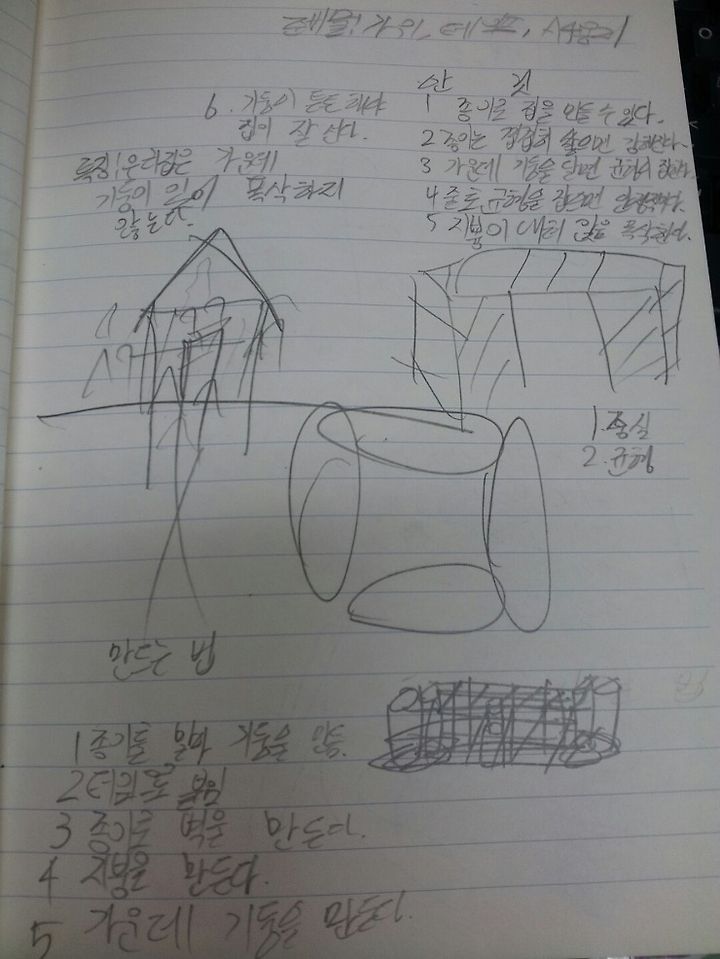 준비물: 가위, 테프, A4용지
안 것
1 종이로 집을 만들 수 있다.
2 종이는 접접히 쌓으면 강해진다.
3 가운데 기둥을 달면 균형이 잡힌다.
4 준로 균형을 잡으면
5 지붕이 내려 앉음 폭삭한다.
6. 기둥이 튼튼해야
집이 잘 산다.
특징: 우리집은 가운데
기둥이 있어 폭삭하지
않는다.
1. 중심
2. 균형
만드는 법
1 종이를 말아 기둥을 만듬.
2 테잎으로 붙임
3 종이로 벽을 만든다.
4 지붕을 만든다.
5 가운데 기둥을 만든다.